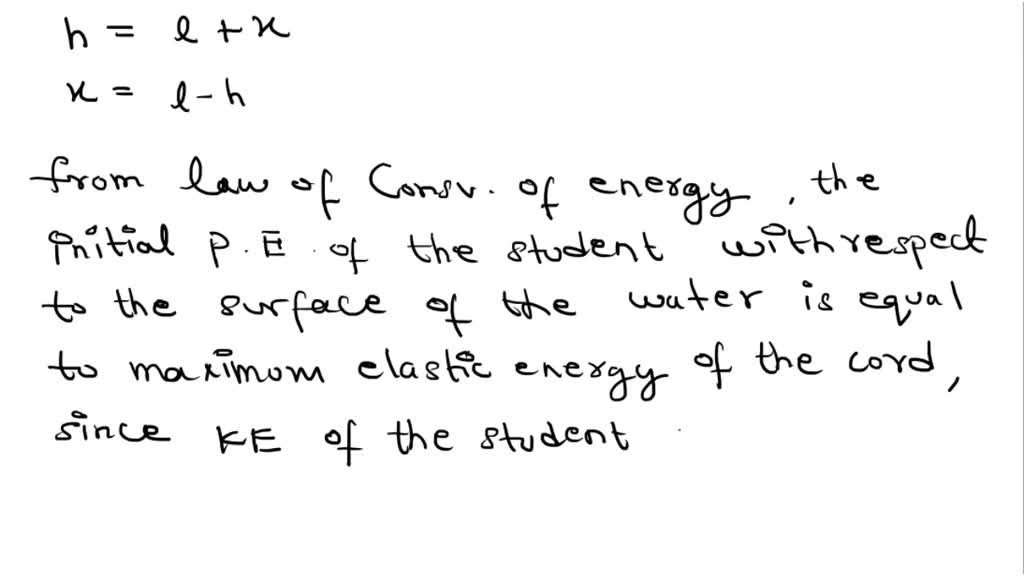 h = l + x
x = l - h
from law of Consv. of energy, the
initial P.E. of the student with respect
to the surface of the water is equal
to maximum elastic energy of the cord,
since KE of the student